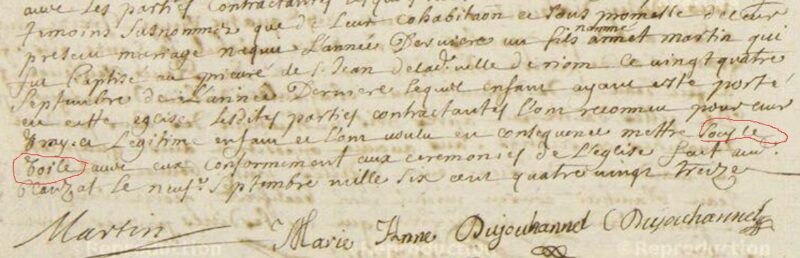 avec les parties contractantes
temoins susnommez que de leur cohabitaon et sous promesse de leur
presen mariage naquit L'année Derniere un fils nommé annet martin qui
fut baptise au prieuré de st Jean de lad. ville de riom ce vingt quatre
septembre de L'année Derniere lequel enfant ayant esté porté
en cette eglise lesdites parties contractantes L'ont reconneu pour leur
vray et Legitime enfant et L'ont voulu en consequence mettre sous le
voile avec eux conformement aux ceremonies de L'eglise fait aud.
le neuf.e septembre mille six cent quatre vingt treize
Martin Marie Anne Dujouhannel Dujouhannel
©Reproduction ©Reproduction ©Reproduction